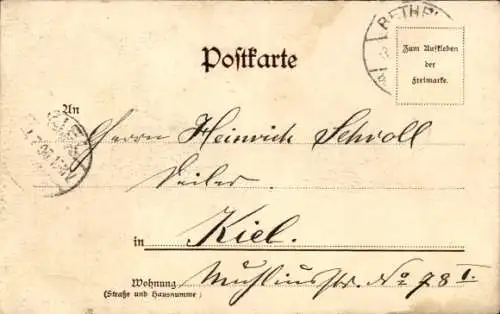 Postkarte
Zum Aufkleben
der
Freimarke.
An
Herrn Heinrich Scholl
in Kiel.
Wohnung Muhliusstr. No 78 I.
(Straße und Hausnumme)